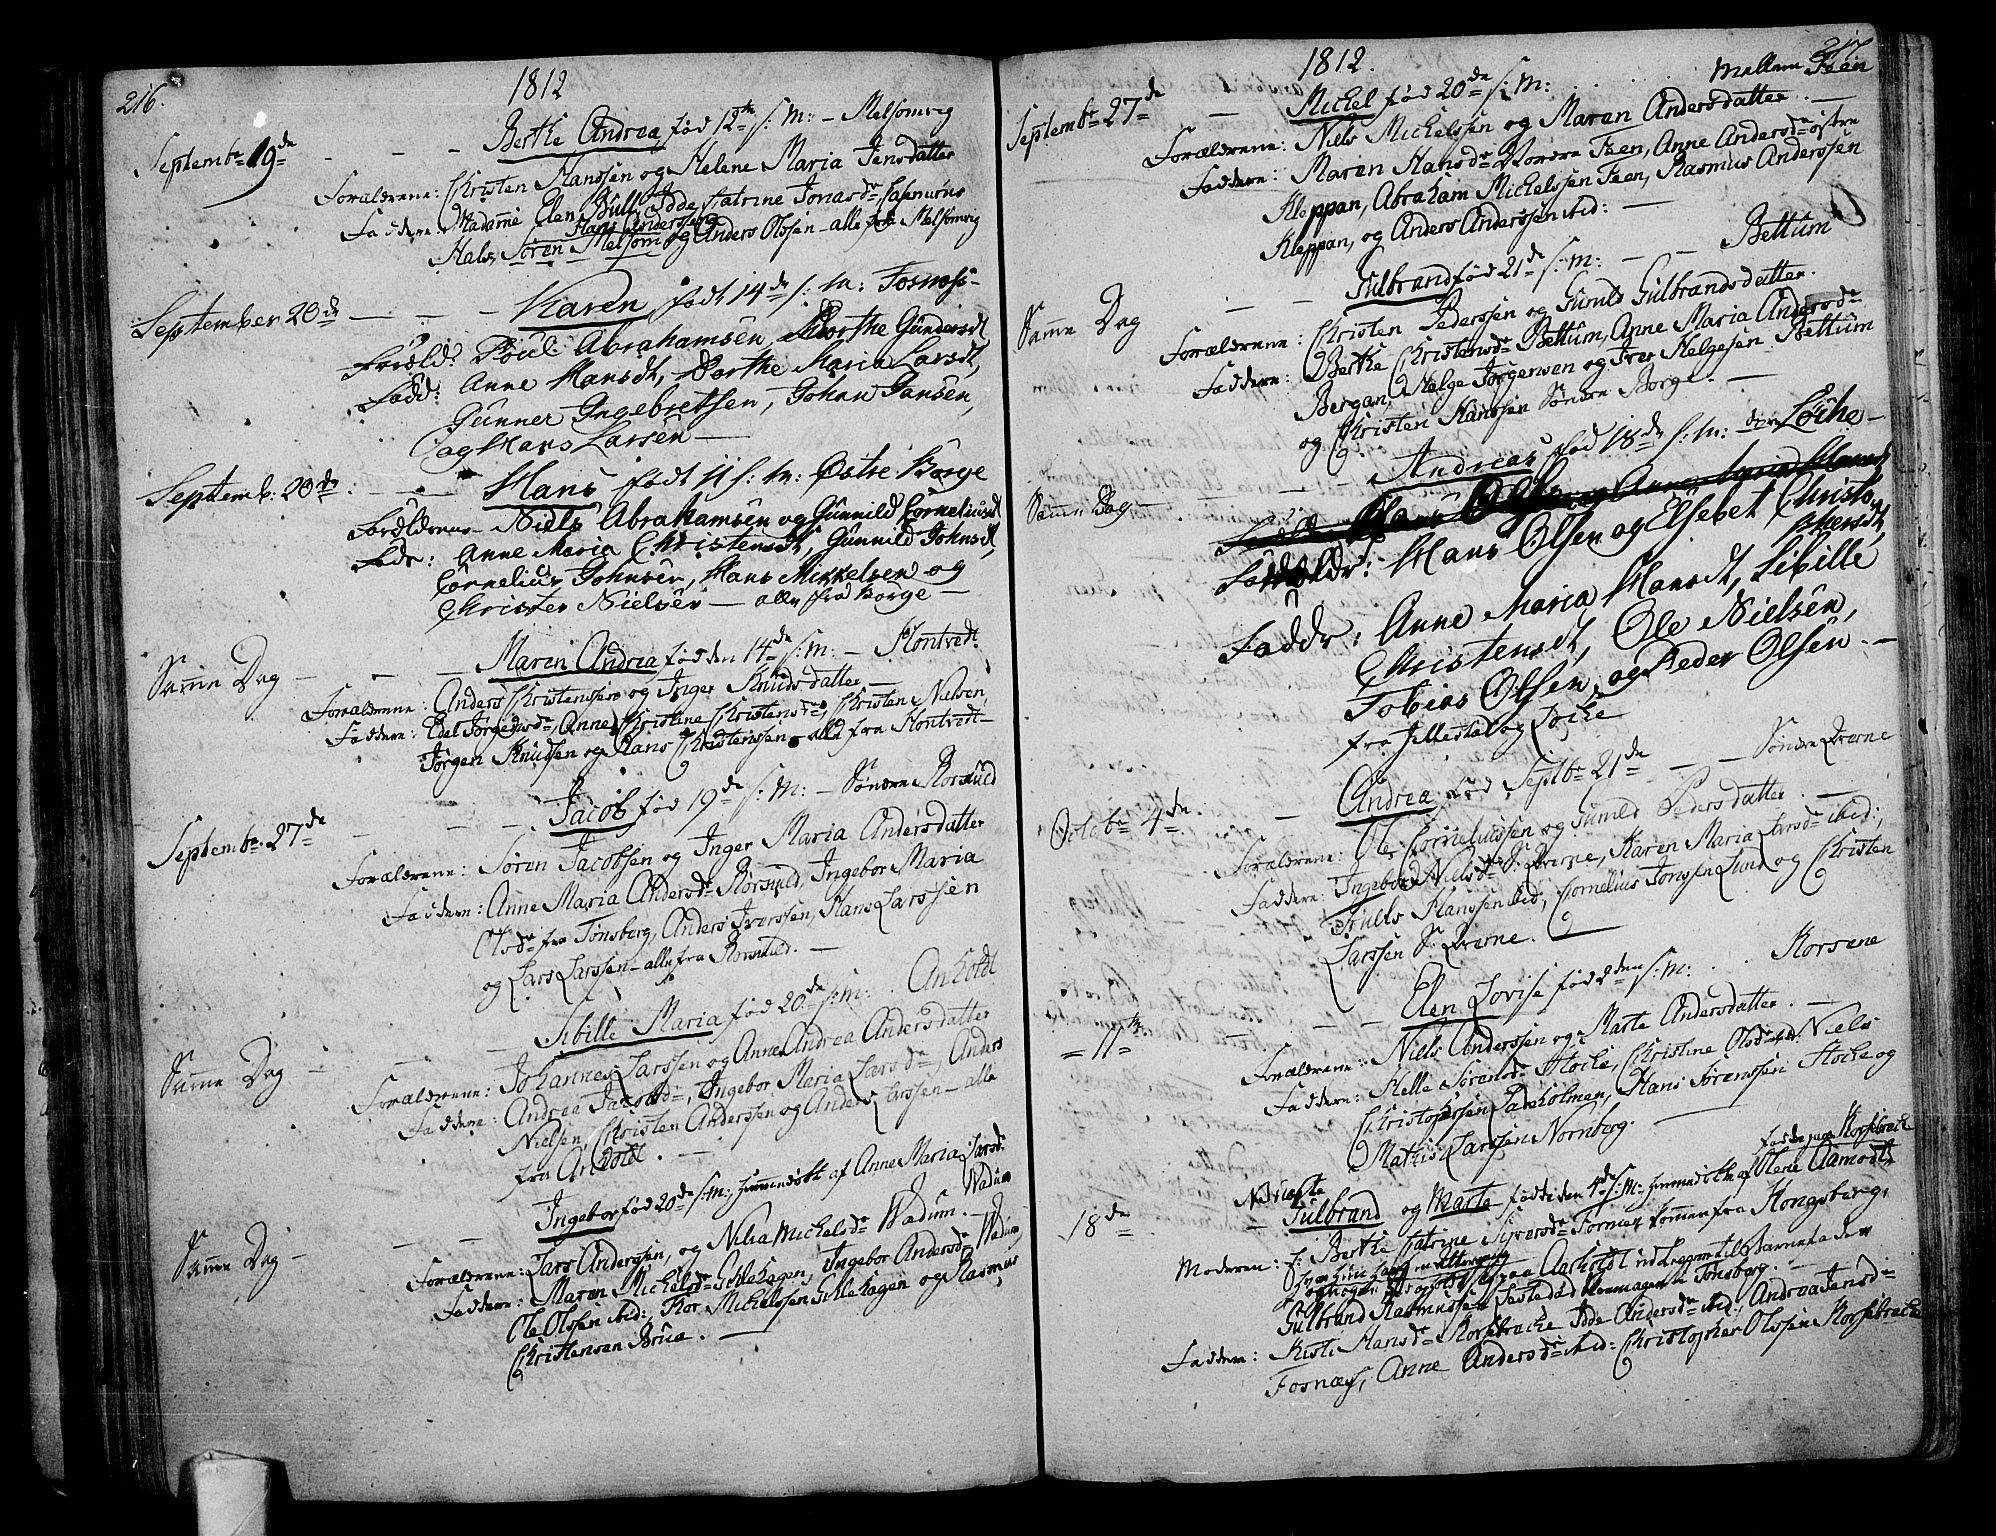 216.
1812
Septembr 19de — — — Berthe Andrea, fød 12te s: M: — Melsomvig
Forældrene: Christen Hanssen og Helene Maria Jensdatter
Faddere: Madamme Elen Bull, Idde Catrine Jonasdr
Hans Anderssen
Søren Melsom og Anders Olssen — alle fra Melsomvig
September 20de — — — Karen, født 14de s: M: Fosnæss
Foræld: Poul Abrahamsen, Dorthe Gundersdt
Fadd: Anne Hansdt, Dorthe Maria Larsdt,
Gunner Ingebretsen, Johan Jansen,
og Hans Larsen —
Septemb: 20de — — Hans født 11 s: M: Østre Borge
Forældrene — Niels Abrahamsen og Gunnild Corneliusdt
Fadr: Anne Maria Christensdt, Gunnild Johnsdt,
Cornelius Johnsen, Hans Mikkelsen og
Christen Nielsen — alle fra Borge —
Samme Dag — — — Maren Andrea fød den 14de s: M: — Hontvedt
Forældrene: Anders Christenssen og Inger Knudsdatter —
Faddere: Edel Jørgensdr, Anne Christine Christensdr, Christen Nielsen,
Jørgen Knudsen og Hans Christenssen, alle fra Hontvedt —
Septembr 27de — — — Jacob fød 19de s: M: — Søndre Korsmid
Forældrene: Søren Jacobsen og Inger Maria Andersdatter
Faddere: Anne Maria Andersdr Korsmid, Ingebor Maria
Olsdr fra Tønsberg, Anders Iverssen, Hans Larssen
og Lars Larssen — alle fra Korsmid. —
Samme Dag — — — Sibille Maria fød 20de s: M: Arholdt
Forældrene: Johannes Larssen og Anne Andrea Andersdatter
Faddere: Andrea Jacobsdr, Ingebor Maria Larsdr, Anders
Nielsen, Christen Anderssen og Anders Larssen — alle
fra Arholdt. —
Samme Dag — — — Ingebor fød 20de s: M: hjemmedøbt af Anne Maria Larsdr
Wadum
Forældrene: Lars Anderssen, og Nilia Michelsdr Wadum. —
Faddere: Maren Michelsdr Gillehagen, Ingebor Andersdr Wadum,
Ole Olssen ibid: Thor Michelssen Gillehagen og Rasmus
Christensen Brua. —
217
1812.
Mellem Feen
Septembr 27de — Michel fød 20de s: M:
Forældrene: Niels Michelssen og Maren Andersdatter. —
Faddere: Maren Hansdr Nordre Feen, Anne Andersdr østre
Kleppan, Abraham Michelssen Feen, Rasmus Anderssen
Kleppan, og Anders Anderssen ibid: —
Samme Dag — — Gulbrand fød 21de s: M: — — Bettum
Forældrene: Christen Pederssen og Gunild Gulbrandsdatter.
Faddere: Berthe Christensdr Bettum, Anne Maria Andersdr
Bergan, Helge Jørgensen og Iver Helgesen Bettum
og Christen Hanssen Søndre Borge. —
Samme Dag — — — Andreas fød 18de s: M: Løche —
Forældr: Hans Olsen og Elsebet Christo-
phersdt,
Faddr: Anne Maria Hansdt, Sibille
Christensdt, Ole Nielsen,
Tobias Olsen, og Peder Olsen. —
fra Jellestal og Løche
Octobr 4de — Andrea, fød Septbr 21de — — Søndre Qverne
Forældrene: Ole Corneliussen og Gunild Pedersdatter. —
Faddere: Ingebor Nielsdr S. Qverne, Karen Maria Larsdr ibid:,
Truls Hanssen ibid, Cornelius Jonssen Lund og Christen
Larssen S. Qverne. —
= 11te — — — Elen Lovise fød 2den s: M: Korsene
Forældrene: Niels Anderssen og Marte Andersdatter. —
Faddere: Helle Sørensdr Hocke, Christine Olsdr ibid: Niels
Christopherssen Ladeholmen, Hans Sørenssen Hocke og
Mathis Larssen Nornberg. —
18de — Gulbrand og Marte fødte den 4de s: M: hjemmedøbte af Olene Aamodt
Korsebrecke
Moderen: f: Berthe Catrine Siversdr Fosnæs kommen fra Kongsberg,
udlagen til Barnefader
Gulbrand Rasmussen Tønsberg. —
Faddere: Kisti Hansdr Korsebrecke Idde Andersdr ibid:, Andrea Jensdr
Fosnæs, Anne Andersdr ibid: Christopher Olssen Korsebrecke